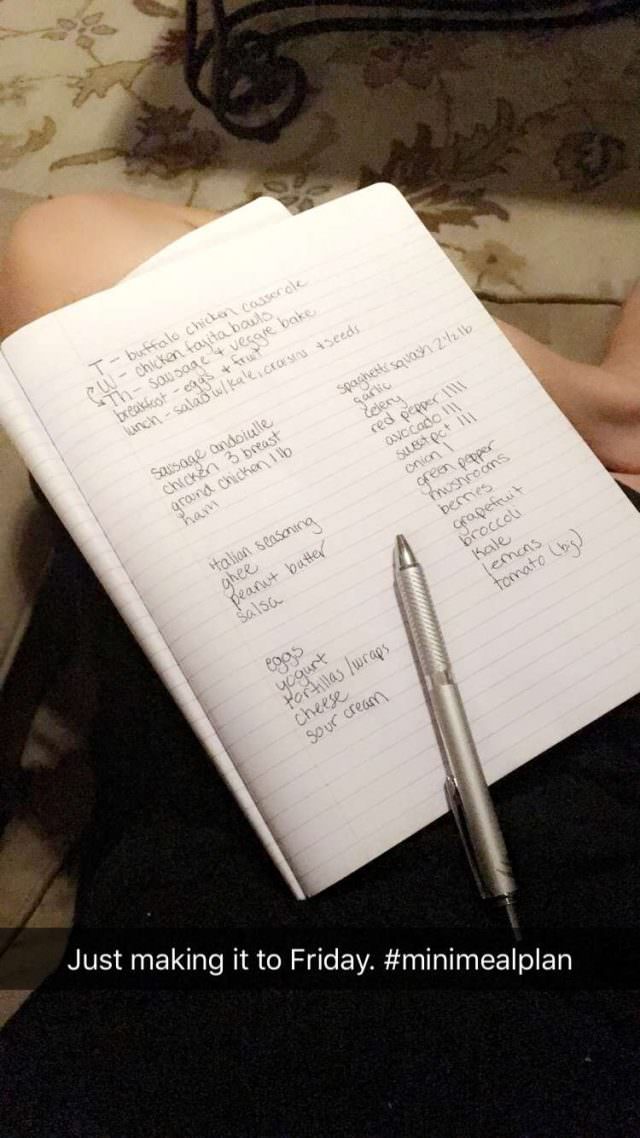 T - buffalo chicken casserole
W - chicken fajita bowls
*Th - sausage + veggie bake
breakfast - eggs + fruit
lunch - salad w/ kale, craisins + seeds
sausage andoiulle
chicken 3 breast
ground chicken 1 lb
ham
italian seasoning
ghee
peanut butter
salsa
eggs
yogurt
tortillas/wraps
cheese
sour cream
spaghetti squash 2 1/2 lb
garlic
celery
red pepper ||||
avocado |||
sweet pot |||
onion |
green pepper
mushrooms
berries
grapefruit
broccoli
kale
lemons
tomato (big)
Just making it to Friday. #minimealplan